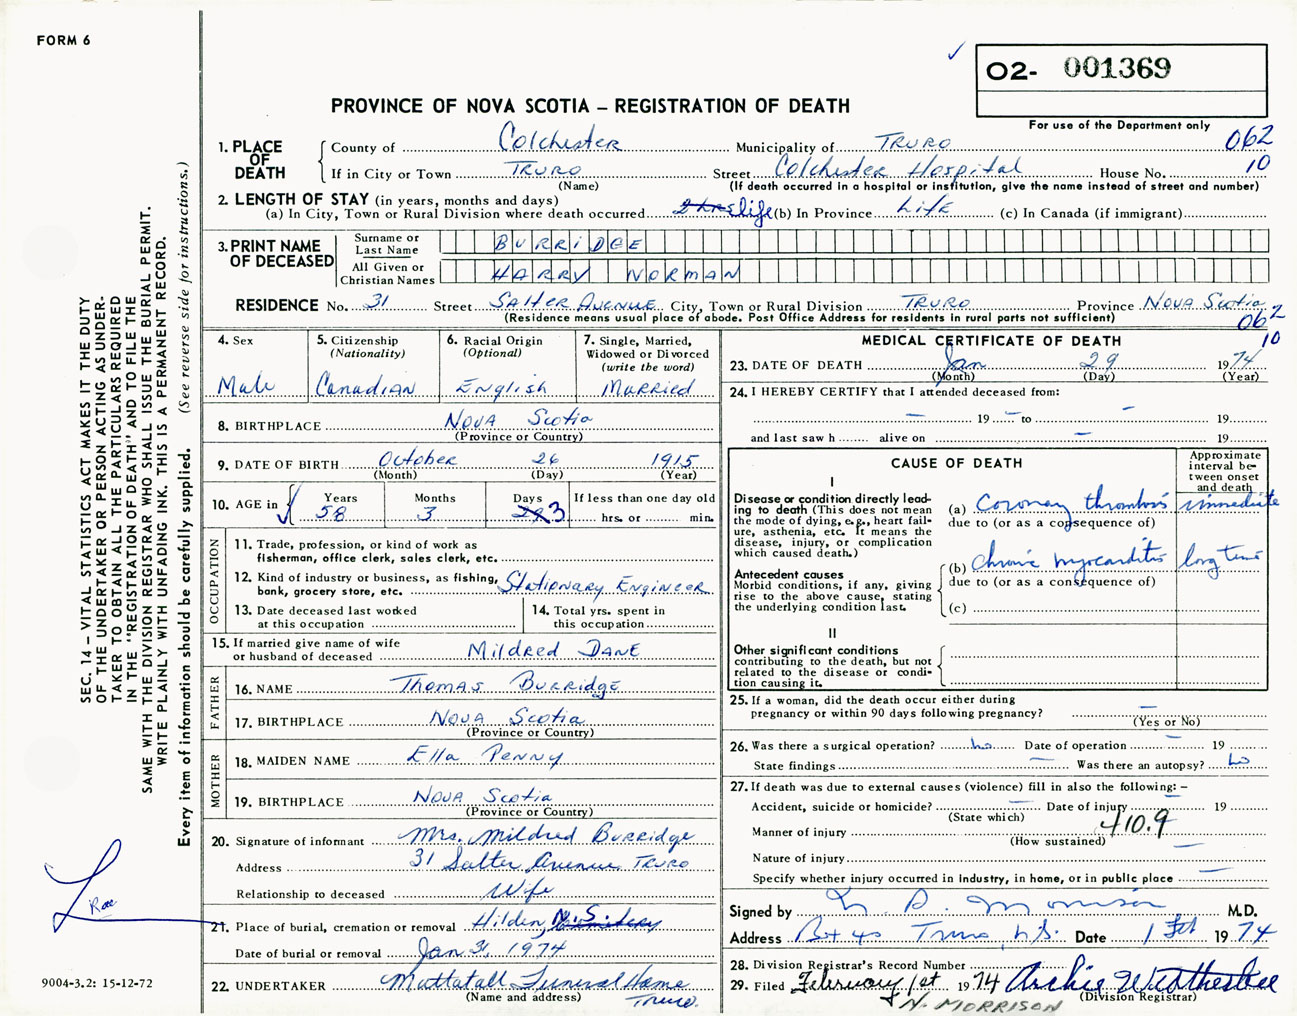 FORM 6
O2- 001369
PROVINCE OF NOVA SCOTIA – REGISTRATION OF DEATH
For use of the Department only
062
10
1. PLACE OF DEATH
County of Colchester Municipality of TRURO
If in City or Town TRURO Street Colchester Hospital House No.
(Name) (If death occurred in a hospital or institution, give the name instead of street and number)
2. LENGTH OF STAY (in years, months and days)
(a) In City, Town or Rural Division where death occurred 2 hrs life (b) In Province Life (c) In Canada (if immigrant)
3. PRINT NAME OF DECEASED
Surname or Last Name BURRIDGE
All Given or Christian Names HARRY NORMAN
RESIDENCE No. 31 Street Salter Avenue City, Town or Rural Division TRURO Province Nova Scotia
(Residence means usual place of abode. Post Office Address for residents in rural parts not sufficient)
062
10
4. Sex Male
5. Citizenship (Nationality) Canadian
6. Racial Origin (Optional) English
7. Single, Married, Widowed or Divorced (write the word) Married
8. BIRTHPLACE Nova Scotia
(Province or Country)
9. DATE OF BIRTH October 26 1915
(Month) (Day) (Year)
10. AGE in Years 58 Months 3 Days 3 If less than one day old hrs. or min.
OCCUPATION
11. Trade, profession, or kind of work as fisherman, office clerk, sales clerk, etc.
12. Kind of industry or business, as fishing, bank, grocery store, etc. Stationary Engineer
13. Date deceased last worked at this occupation
14. Total yrs. spent in this occupation
15. If married give name of wife or husband of deceased Mildred Dane
FATHER
16. NAME Thomas Burridge
17. BIRTHPLACE Nova Scotia
(Province or Country)
MOTHER
18. MAIDEN NAME Ella Penny
19. BIRTHPLACE Nova Scotia
(Province or Country)
20. Signature of informant Mrs. Mildred Burridge
Address 31 Salter Avenue Truro
Relationship to deceased Wife
21. Place of burial, cremation or removal Hilden, N.S. Cemetery
Date of burial or removal Jan 31, 1974
22. UNDERTAKER Mattatall Funeral Home
(Name and address) Truro.
MEDICAL CERTIFICATE OF DEATH
23. DATE OF DEATH Jan 29 1974
(Month) (Day) (Year)
24. I HEREBY CERTIFY that I attended deceased from:
– 19 – to – 19
and last saw h alive on – 19
CAUSE OF DEATH
Approximate interval between onset and death
I
Disease or condition directly leading to death (This does not mean the mode of dying, e.g., heart failure, asthenia, etc. It means the disease, injury, or complication which caused death.)
(a) Coronary thrombosis immediate
due to (or as a consequence of)
Antecedent causes
Morbid conditions, if any, giving rise to the above cause, stating the underlying condition last.
(b) chronic myocarditis long time
due to (or as a consequence of)
(c)
II
Other significant conditions
contributing to the death, but not related to the disease or condition causing it.
25. If a woman, did the death occur either during pregnancy or within 90 days following pregnancy? –
(Yes or No)
26. Was there a surgical operation? no Date of operation – 19
State findings – Was there an autopsy? no
27. If death was due to external causes (violence) fill in also the following: –
Accident, suicide or homicide? – Date of injury – 19
(State which)
Manner of injury 410.9
(How sustained)
Nature of injury –
Specify whether injury occurred in industry, in home, or in public place –
Signed by D. Morrison M.D.
Address Box 40 Truro, N.S. Date 1 Feb 1974
28. Division Registrar's Record Number
29. Filed February 1st 1974 Archie Weatherbee
(Division Registrar)
N. MORRISON
SEC. 14 – VITAL STATISTICS ACT MAKES IT THE DUTY
OF THE UNDERTAKER OR PERSON ACTING AS UNDER-
TAKER TO OBTAIN ALL THE PARTICULARS REQUIRED
IN THE "REGISTRATION OF DEATH" AND TO FILE THE
SAME WITH THE DIVISION REGISTRAR WHO SHALL ISSUE THE BURIAL PERMIT.
WRITE PLAINLY WITH UNFADING INK. THIS IS A PERMANENT RECORD.
Every item of information should be carefully supplied. (See reverse side for instructions.)
9004-3.2: 15-12-72